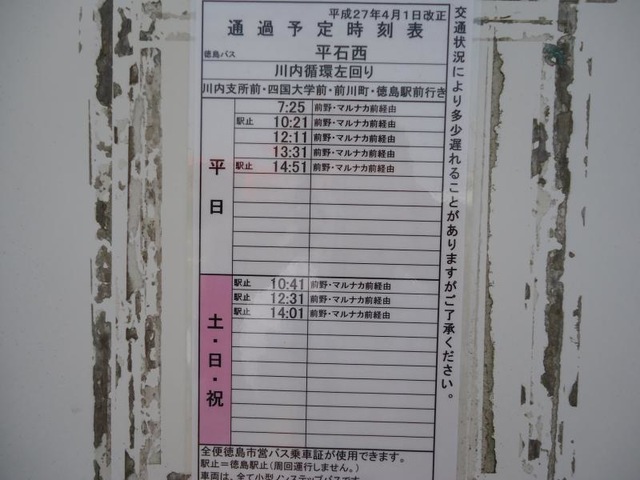 平成27年4月1日改正
通過予定時刻表
徳島バス 平石西
川内循環左回り
川内支所前・四国大学前・前川町・徳島駅前行き
平日
7:25 前野・マルナカ前経由
駅止 10:21 前野・マルナカ前経由
12:11 前野・マルナカ前経由
13:31 前野・マルナカ前経由
駅止 14:51 前野・マルナカ前経由
土・日・祝
駅止 10:41 前野・マルナカ前経由
駅止 12:31 前野・マルナカ前経由
駅止 14:01 前野・マルナカ前経由
全便徳島市営バス乗車証が使用できます。
駅止＝徳島駅止(周回運行しません。)
車両は、全て小型ノンステップバスです。
交通状況により多少遅れることがありますがご了承ください。